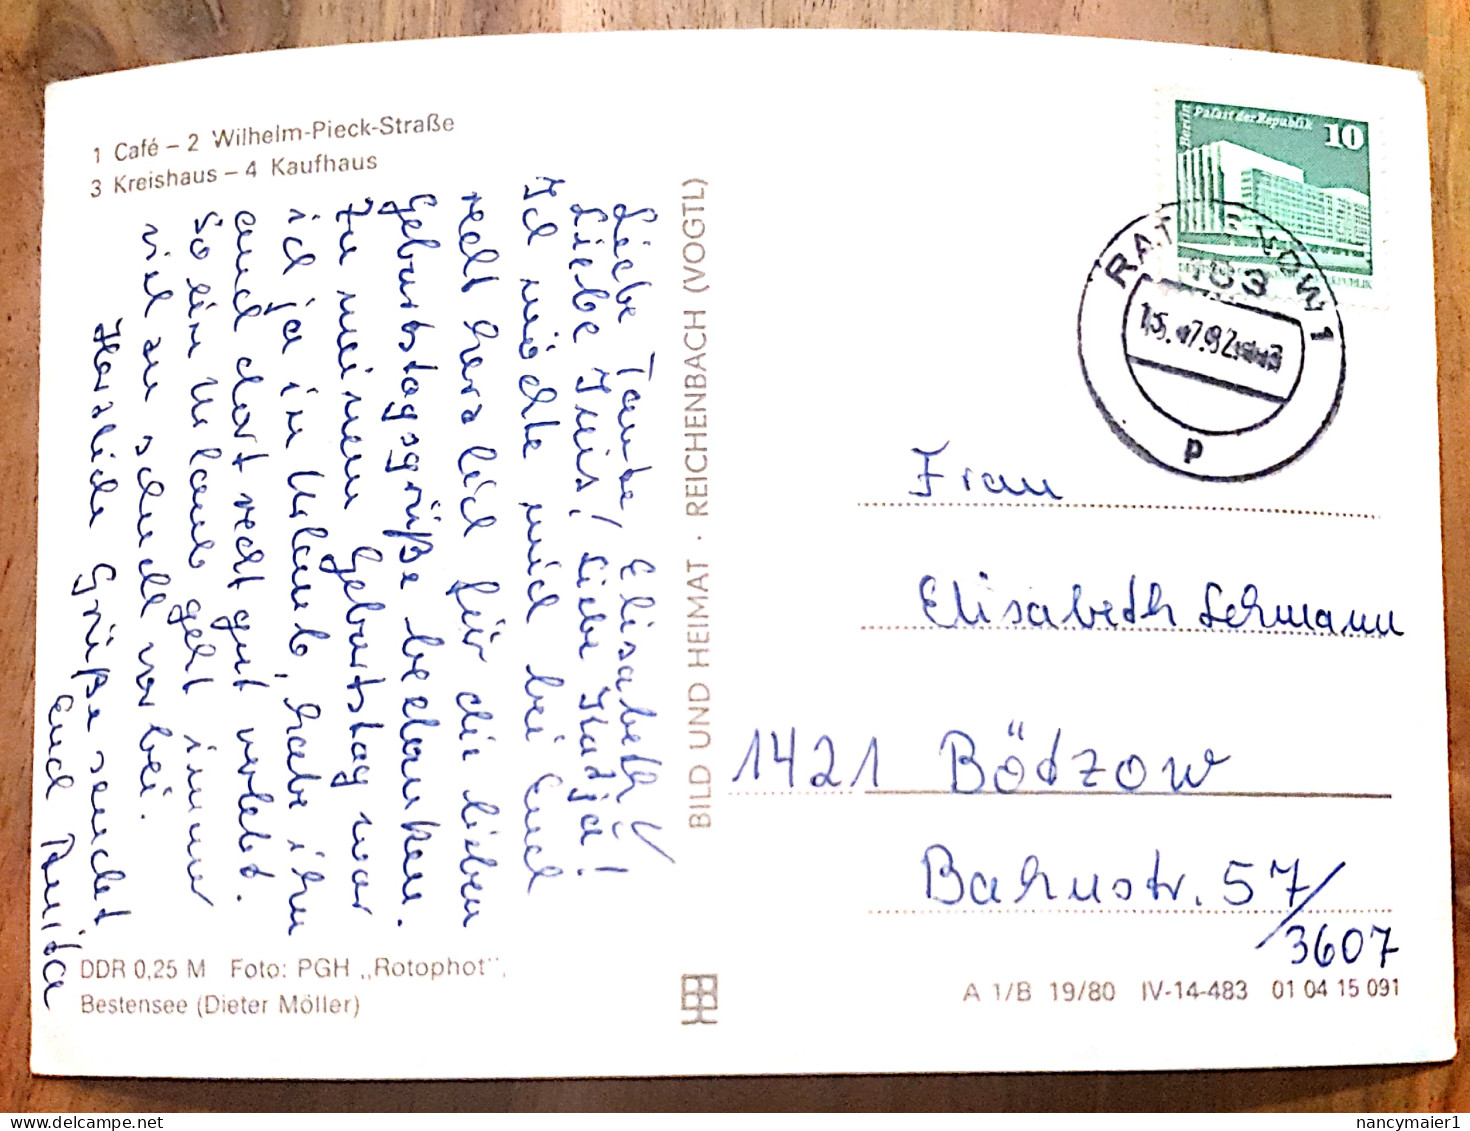 1 Café – 2 Wilhelm-Pieck-Straße
3 Kreishaus – 4 Kaufhaus
Liebe Tante Elisabeth!
Liebe Iris! Liebe Katja!
Ich möchte mich bei Euch
recht herzlich für die lieben
Geburtstagsgrüße bedanken.
Zu meinem Geburtstag war
ich ja in Urlaub, habe ihn
auch dort recht gut verlebt.
So ein Urlaub geht immer
viel zu schnell vorbei.
Herzliche Grüße sendet
Euch Anita
DDR 0,25 M Foto: PGH „Rotophot",
Bestensee (Dieter Möller)
BILD UND HEIMAT · REICHENBACH (VOGTL)
Berlin
Palast der Republik
10
RAT OW 1
15. 7.82
p
Frau
Elisabeth Lehmann
1421 Bötzow
Bahnstr. 57/
3607
A 1/B 19/80 IV-14-483 01 04 15 091
nancymaier1